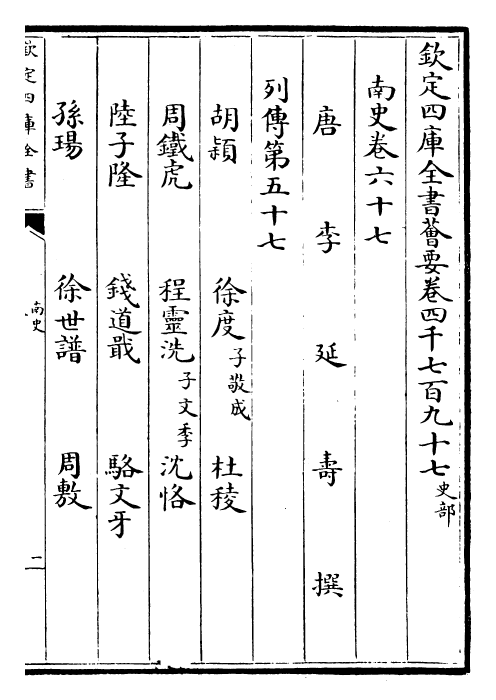 欽定四庫全書薈要卷四千七百九十七史部
南史卷六十七
唐李延壽撰
列傳第五十七
胡穎 徐度子敬成 杜稜
周鐵虎 程靈洗子文季 沈恪
陸子隆 錢道戢 駱文牙
孫瑒 徐世譜 周敷
欽定四庫全書
南史